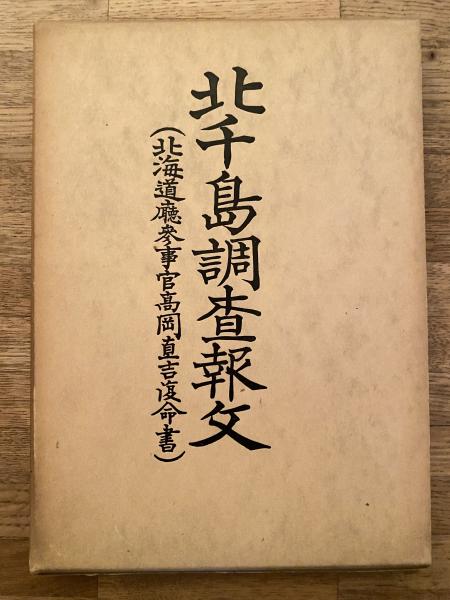 北千島調査報文
(北海道廳參事官高岡直吉復命書)